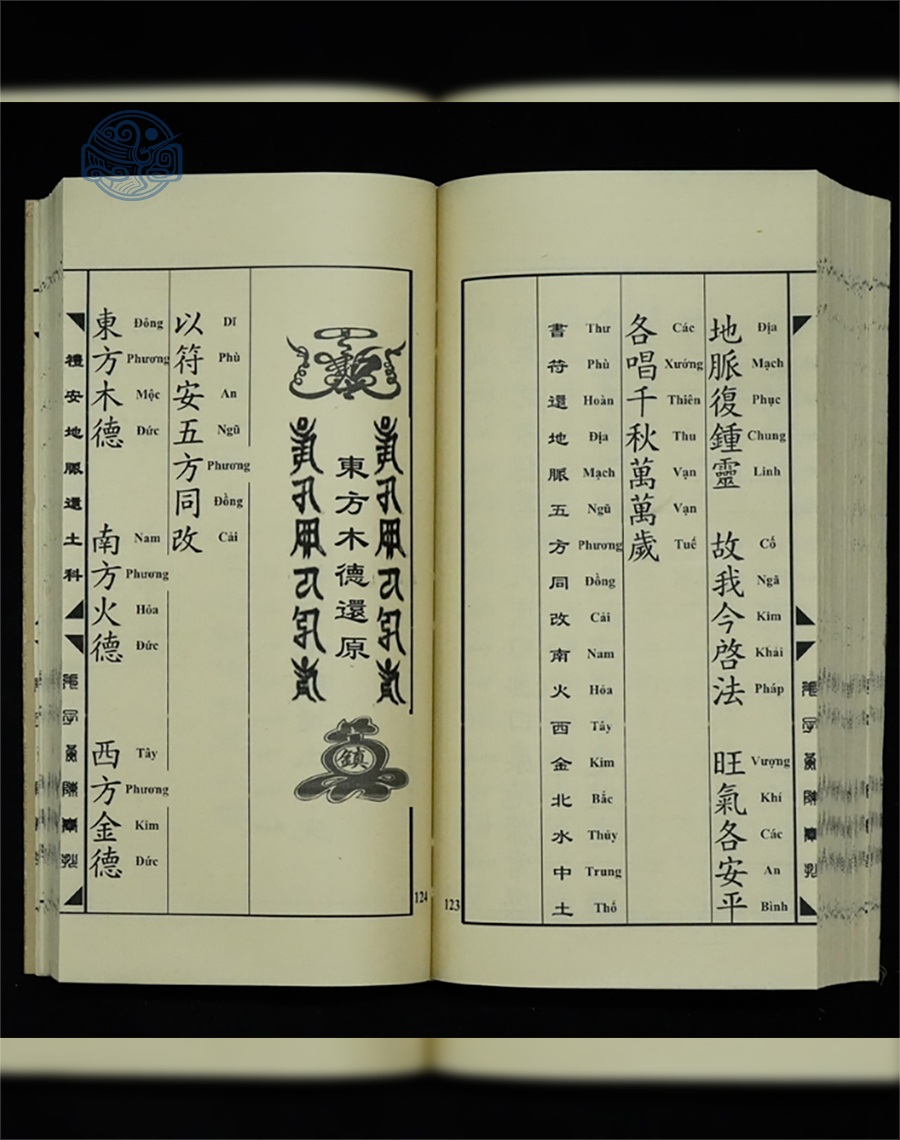 地脈復鍾靈 故我今啓法 旺氣各安平
Địa Mạch Phục Chung Linh Cố Ngã Kim Khải Pháp Vượng Khí Các An Bình
各唱千秋萬萬歲
Các Xướng Thiên Thu Vạn Vạn Tuế
書符還地脈五方同改南火西金北水中土
Thư Phù Hoàn Địa Mạch Ngũ Phương Đồng Cải Nam Hỏa Tây Kim Bắc Thủy Trung Thổ
123
東方木德還原
鎮
124
以符安五方同改
Dĩ Phù An Ngũ Phương Đồng Cải
東方木德 南方火德 西方金德
Đông Phương Mộc Đức Nam Phương Hỏa Đức Tây Phương Kim Đức
禮安地脈還土科